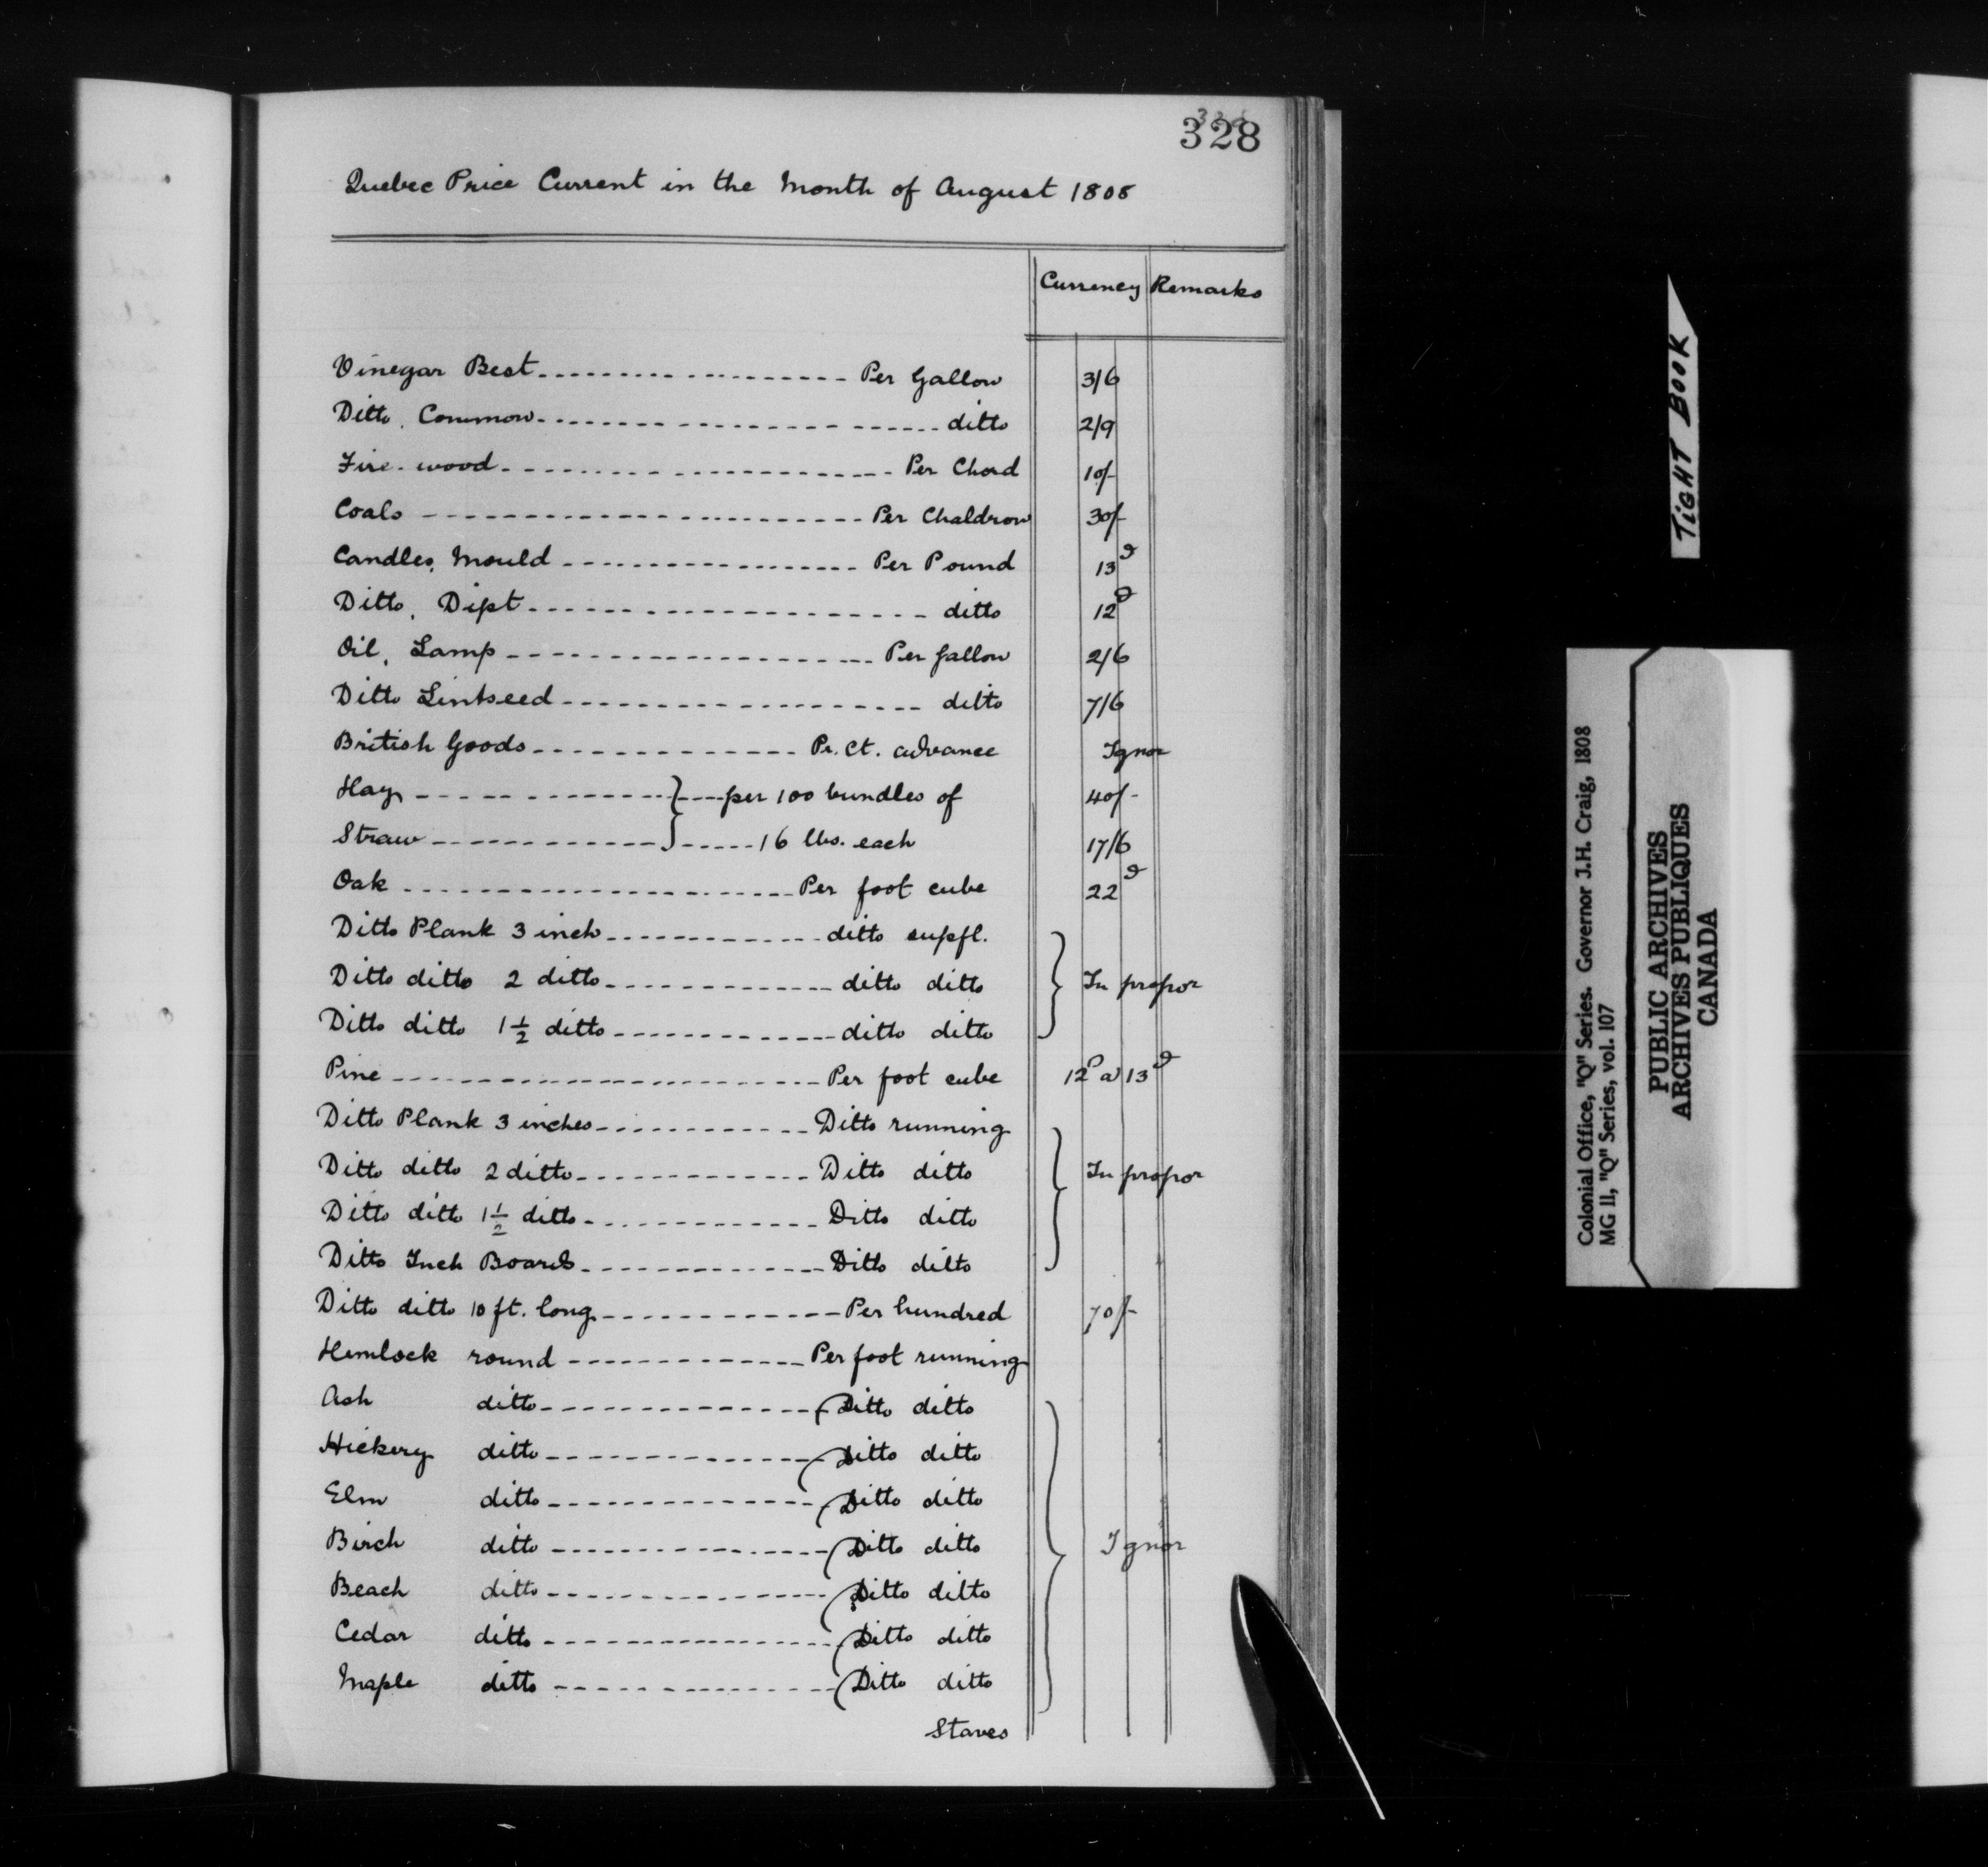 328
Quebec Price Current in the Month of August 1808
Currency Remarks
Vinegar Best Per Gallon 3/6
Ditto, Common ditto 2/9
Fire-wood Per Chord 10/-
Coals Per Chaldron 30/-
Candles, Mould Per Pound 13d
Ditto, Dipt ditto 12d
Oil, Lamp Per Gallon 2/6
Ditto Lintseed ditto 7/6
British Goods Pr. Ct. advance Ignor
Hay per 100 bundles of 40/-
Straw 16 lbs. each 17/6
Oak Per foot cube 22d
Ditto Plank 3 inch ditto supfl.
Ditto ditto 2 ditto ditto ditto In propor
Ditto ditto 1 1/2 ditto ditto ditto
Pine Per foot cube 12d a 13d
Ditto Plank 3 inches Ditto running
Ditto ditto 2 ditto Ditto ditto In propor
Ditto ditto 1 1/2 ditto Ditto ditto
Ditto Inch Boards Ditto ditto
Ditto ditto 10 ft. long Per hundred 70/-
Hemlock round Per foot running
Ash ditto Ditto ditto
Hickery ditto Ditto ditto
Elm ditto Ditto ditto
Birch ditto Ditto ditto Ignor
Beach ditto Ditto ditto
Cedar ditto Ditto ditto
Maple ditto Ditto ditto
Staves
TIGHT BOOK
Colonial Office, "Q" Series. Governor J.H. Craig, 1808
MG 11, "Q" Series, vol. 107
PUBLIC ARCHIVES
ARCHIVES PUBLIQUES
CANADA